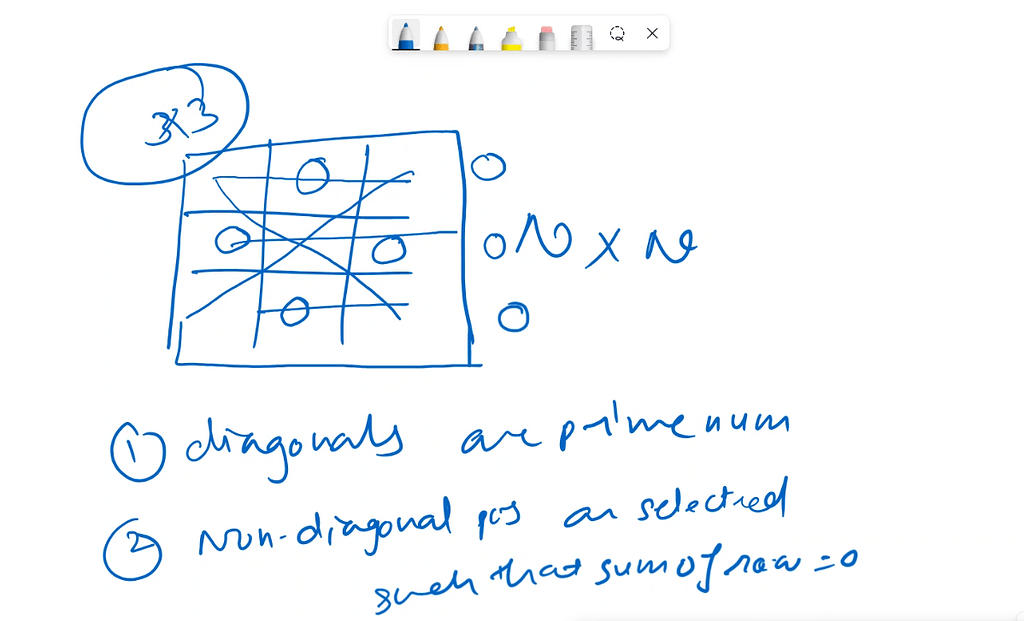 3x3
O
O
O N x N
O
O
O
① diagonals are prime num
② Non-diagonal pos are selected
such that sum of row = 0